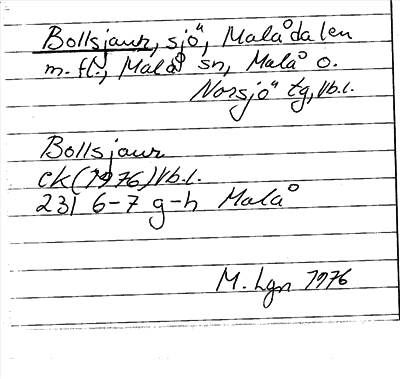 Bollsjaur, sjö, Malådalen
m. fl., Malå sn, Malå o.
Norsjö tg, Vb.l.
Bollsjaur
ek (1976) Vb.l.
23I 6-7 g-h Malå
M. Lgn 1976